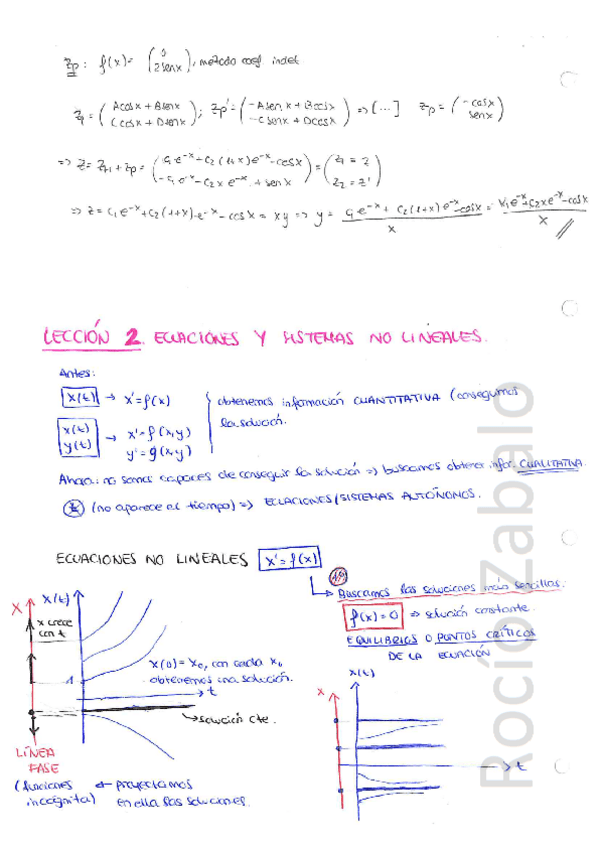 Zp: f(x)= (0 2senx), método coef indet
Zp = (Acosx + Bsenx Ccosx + Dsenx); Zp' = (-Asenx + Bcosx -Csenx + Dcosx) => [...] Zp = (-cosx senx)
=> Z = ZH + Zp = (C1e^-x + C2(1+x)e^-x - cosx -C1e^-x - C2xe^-x + senx) = (Z1 = Z Z2 = Z')
=> Z = C1e^-x + C2(1+x)e^-x - cosx = xy => y = C1e^-x + C2(1+x)e^-x - cosx / x = K1e^-x + C2xe^-x - cosx / x
LECCIÓN 2. ECUACIONES Y SISTEMAS NO LINEALES.
Antes:
x(t) → x'=f(x)
x(t) y(t) → x'=f(x,y) y'=g(x,y)
obtenemos información CUANTITATIVA (conseguimos
la solución.
Ahora: no somos capaces de conseguir la solución => buscamos obtener infor. CUALITATIVA.
(no aparece el tiempo) => ECUACIONES/SISTEMAS AUTÓNOMOS.
ECUACIONES NO LINEALES x'=f(x)
Buscamos las soluciones más sencillas.
f(x)=0 => solución constante.
EQUILIBRIOS O PUNTOS CRÍTICOS
DE LA ECUACIÓN
x x(t)
x crece
con t
x(0)=x0, con cada x0
obtenemos una solución.
t
solución cte.
LÍNEA
FASE
(funciones incógnita) ← proyectamos
en ella las soluciones.
x x(t)
t
Rocío Zabalo